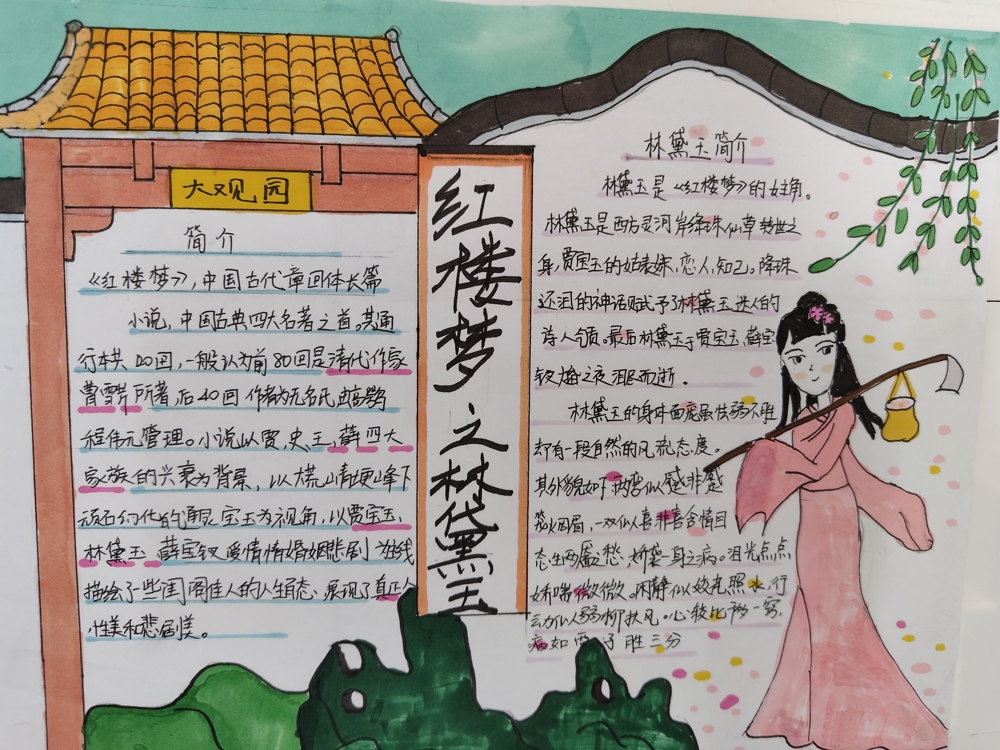 大观园
简介
《红楼梦》，中国古代章回体长篇
小说，中国古典四大名著之首。其通
行本共120回，一般认为前80回是清代作家
曹雪芹所著，后40回作者为无名氏，高鹗
程伟元管理。小说以贾、史、王、薛四大
家族的兴衰为背景，以大荒山青埂峰下
顽石幻化的通灵宝玉为视角，以贾宝玉、
林黛玉、薛宝钗爱情婚姻悲剧为主线
描绘了一些闺阁佳人的人生百态，展现了真正人
性美和悲剧美。
红楼梦之林黛玉
林黛玉简介
林黛玉是《红楼梦》的女主角。
林黛玉是西方灵河岸绛珠仙草转世之
身，贾宝玉的姑表妹，恋人，知己。降珠
还泪的神话赋予了林黛玉迷人的
诗人气质。最后林黛玉于贾宝玉、薛宝
钗婚之夜泪尽而逝。
林黛玉的身体面庞虽怯弱不胜
却有一段自然的风流态度。
其外貌如下 两弯似蹙非蹙
烟眉，一双似喜非喜含情目
态生两靥之愁，娇袭一身之病。泪光点点
娇喘微微。闲静似姣花照水，行
动似弱柳扶风。心较比干多一窍
病如西子胜三分